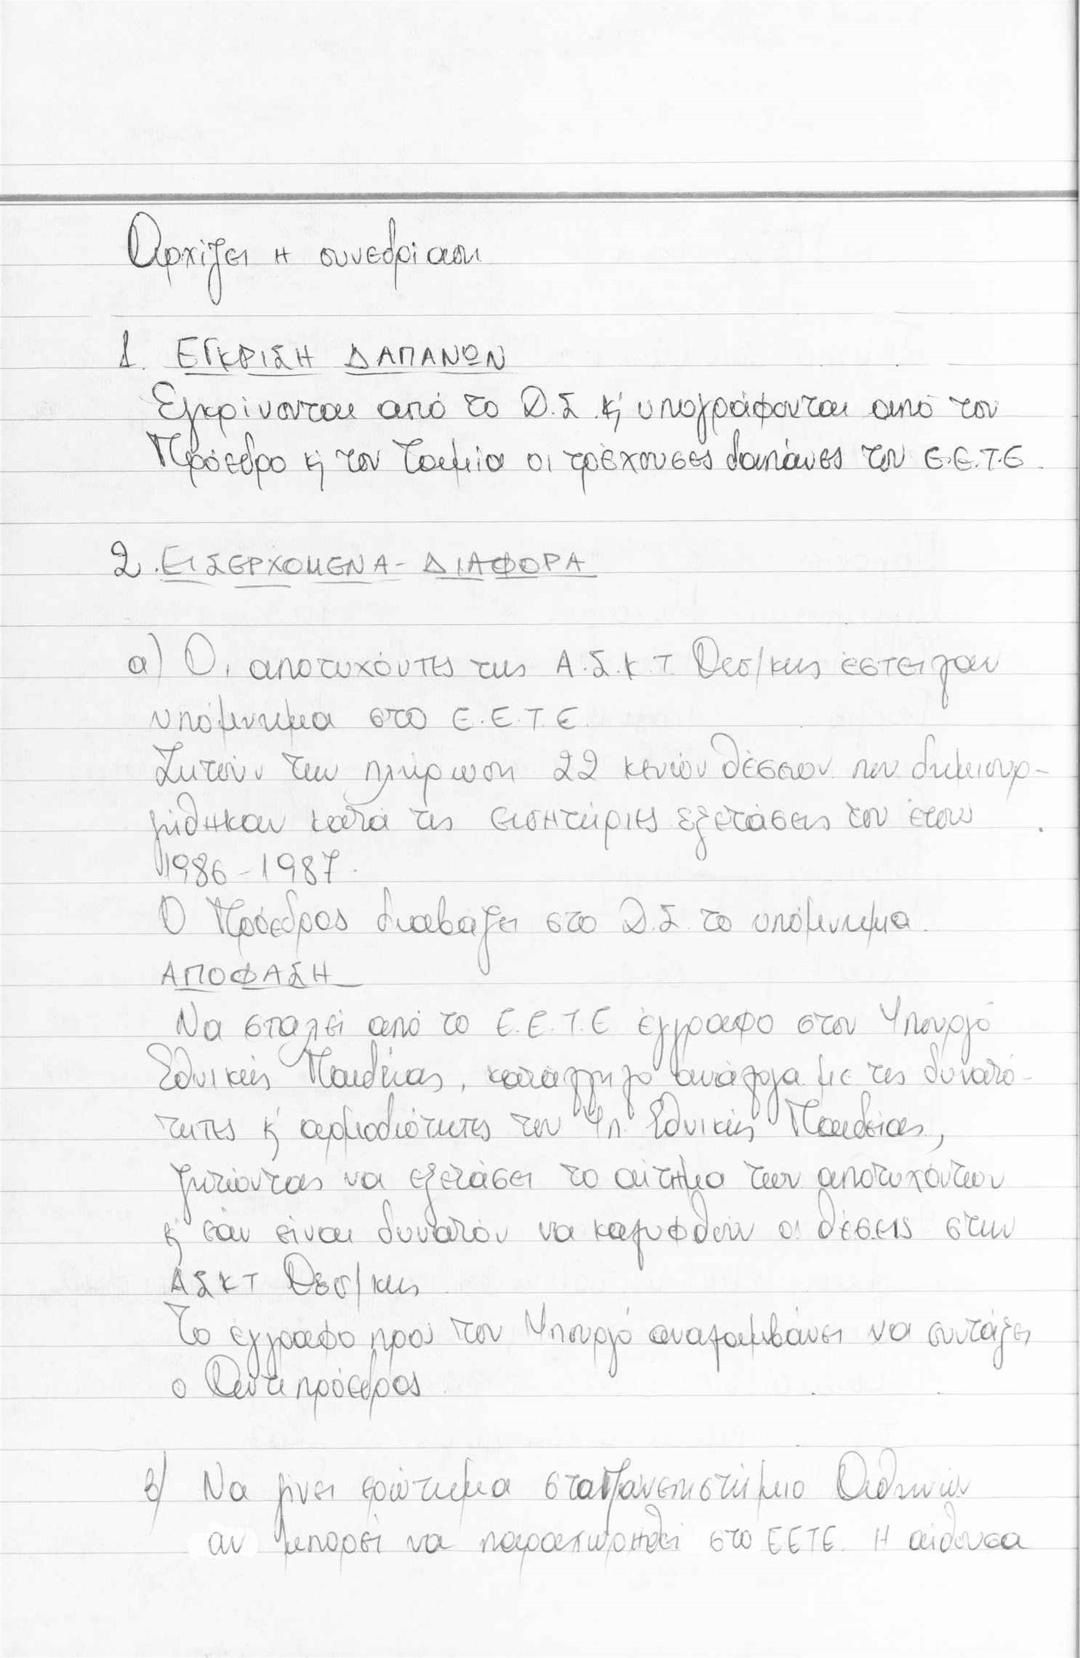 Αρχίζει η συνεδρίαση
1. ΕΓΚΡΙΣΗ ΔΑΠΑΝΩΝ
Εγκρίνονται από το Δ.Σ. κ' υπογράφονται από τον
Πρόεδρο κ' τον Ταμία οι τρέχουσες δαπάνες του Ε.Ε.Τ.Ε.
2. ΕΙΣΕΡΧΟΜΕΝΑ - ΔΙΑΦΟΡΑ
α) Οι αποτυχόντες της Α.Σ.Κ.Τ. Θεσ/κης έστειλαν
υπόμνημα στο Ε.Ε.Τ.Ε.
Ζητούν την πλήρωση 22 κενών θέσεων που δημιουρ-
γήθηκαν κατά τις εισητήριες εξετάσεις του έτους
1986-1987.
Ο Πρόεδρος διαβάζει στο Δ.Σ. το υπόμνημα.
ΑΠΟΦΑΣΗ
Να σταλεί από το Ε.Ε.Τ.Ε έγγραφο στον Υπουργό
Εθνικής Παιδείας, κατάλληλο ανάλογα με τις δυνατό-
τητες κ' αρμοδιότητες του Υπ. Εθνικής Παιδείας,
ζητώντας να εξετάσει το αίτημα των αποτυχόντων
κ' εάν είναι δυνατόν να καλυφθούν οι θέσεις στην
ΑΣΚΤ Θεσ/κης
Το έγγραφο προς τον Υπουργό αναλαμβάνει να συντάξει
ο Αντιπρόεδρος
β) Να γίνει ερώτημα στο Πανεπιστήμιο Αθηνών
αν μπορεί να παραχωρηθεί στο ΕΕΤΕ. Η αίθουσα